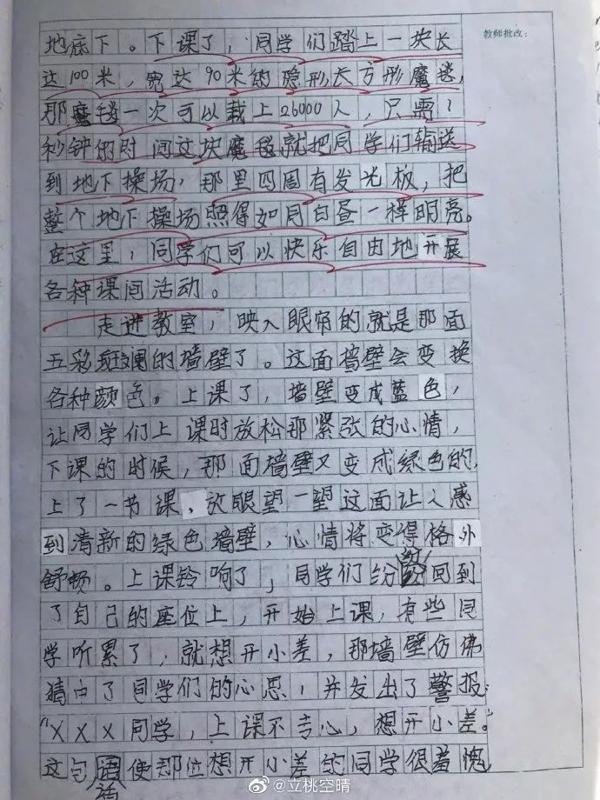 教师批改：
地底下。下课了，同学们踏上一块长
达100米，宽达90米的隐形长方形魔毯，
那魔毯一次可以载上26000人，只需1
秒钟的时间这块魔毯就把同学们输送
到地下操场，那里四周有发光板，把
整个地下操场照得如同白昼一样明亮。
在这里，同学们可以快乐自由地开展
各种课间活动。
走进教室，映入眼帘的就是那面
五彩斑斓的墙壁了。这面墙壁会变换
各种颜色。上课了，墙壁变成蓝色，
让同学们上课时放松那紧张的心情，
下课的时候，那面墙壁又变成绿色的，
上了一节课，放眼望一望这面让人感
到清新的绿色墙壁，心情将变得格外
舒畅。上课铃响了，同学们纷纷回到
了自己的座位上，开始上课，有些同
学听累了，就想开小差，那墙壁仿佛
猜中了同学们的心思，并发出了警报：
“XXX同学，上课不专心，想开小差。”
这句话使那位想开小差的同学很羞愧
@立桃空晴